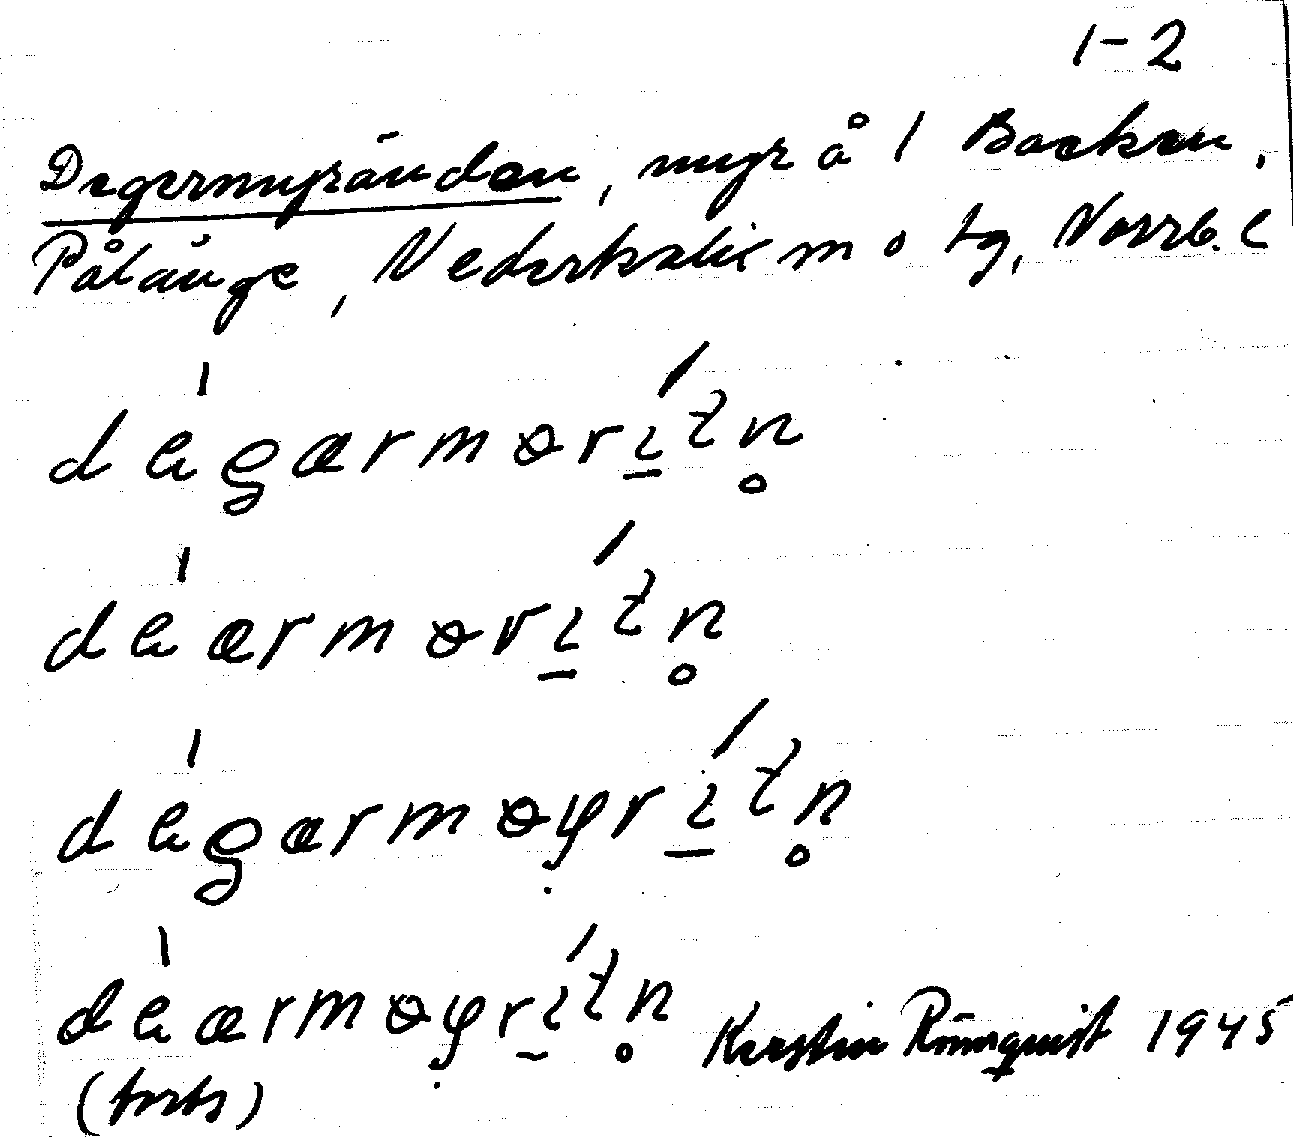 1-2
Degermyrändan, myr å / Backen,
Pålänge, Nederkalix m o tg, Norrb. l
degærmɵrítn̥
deærmɵrítn̥
degærmɵyrítn̥
deærmɵyrítn̥ Kerstin Rönnquist 1945
(forts)